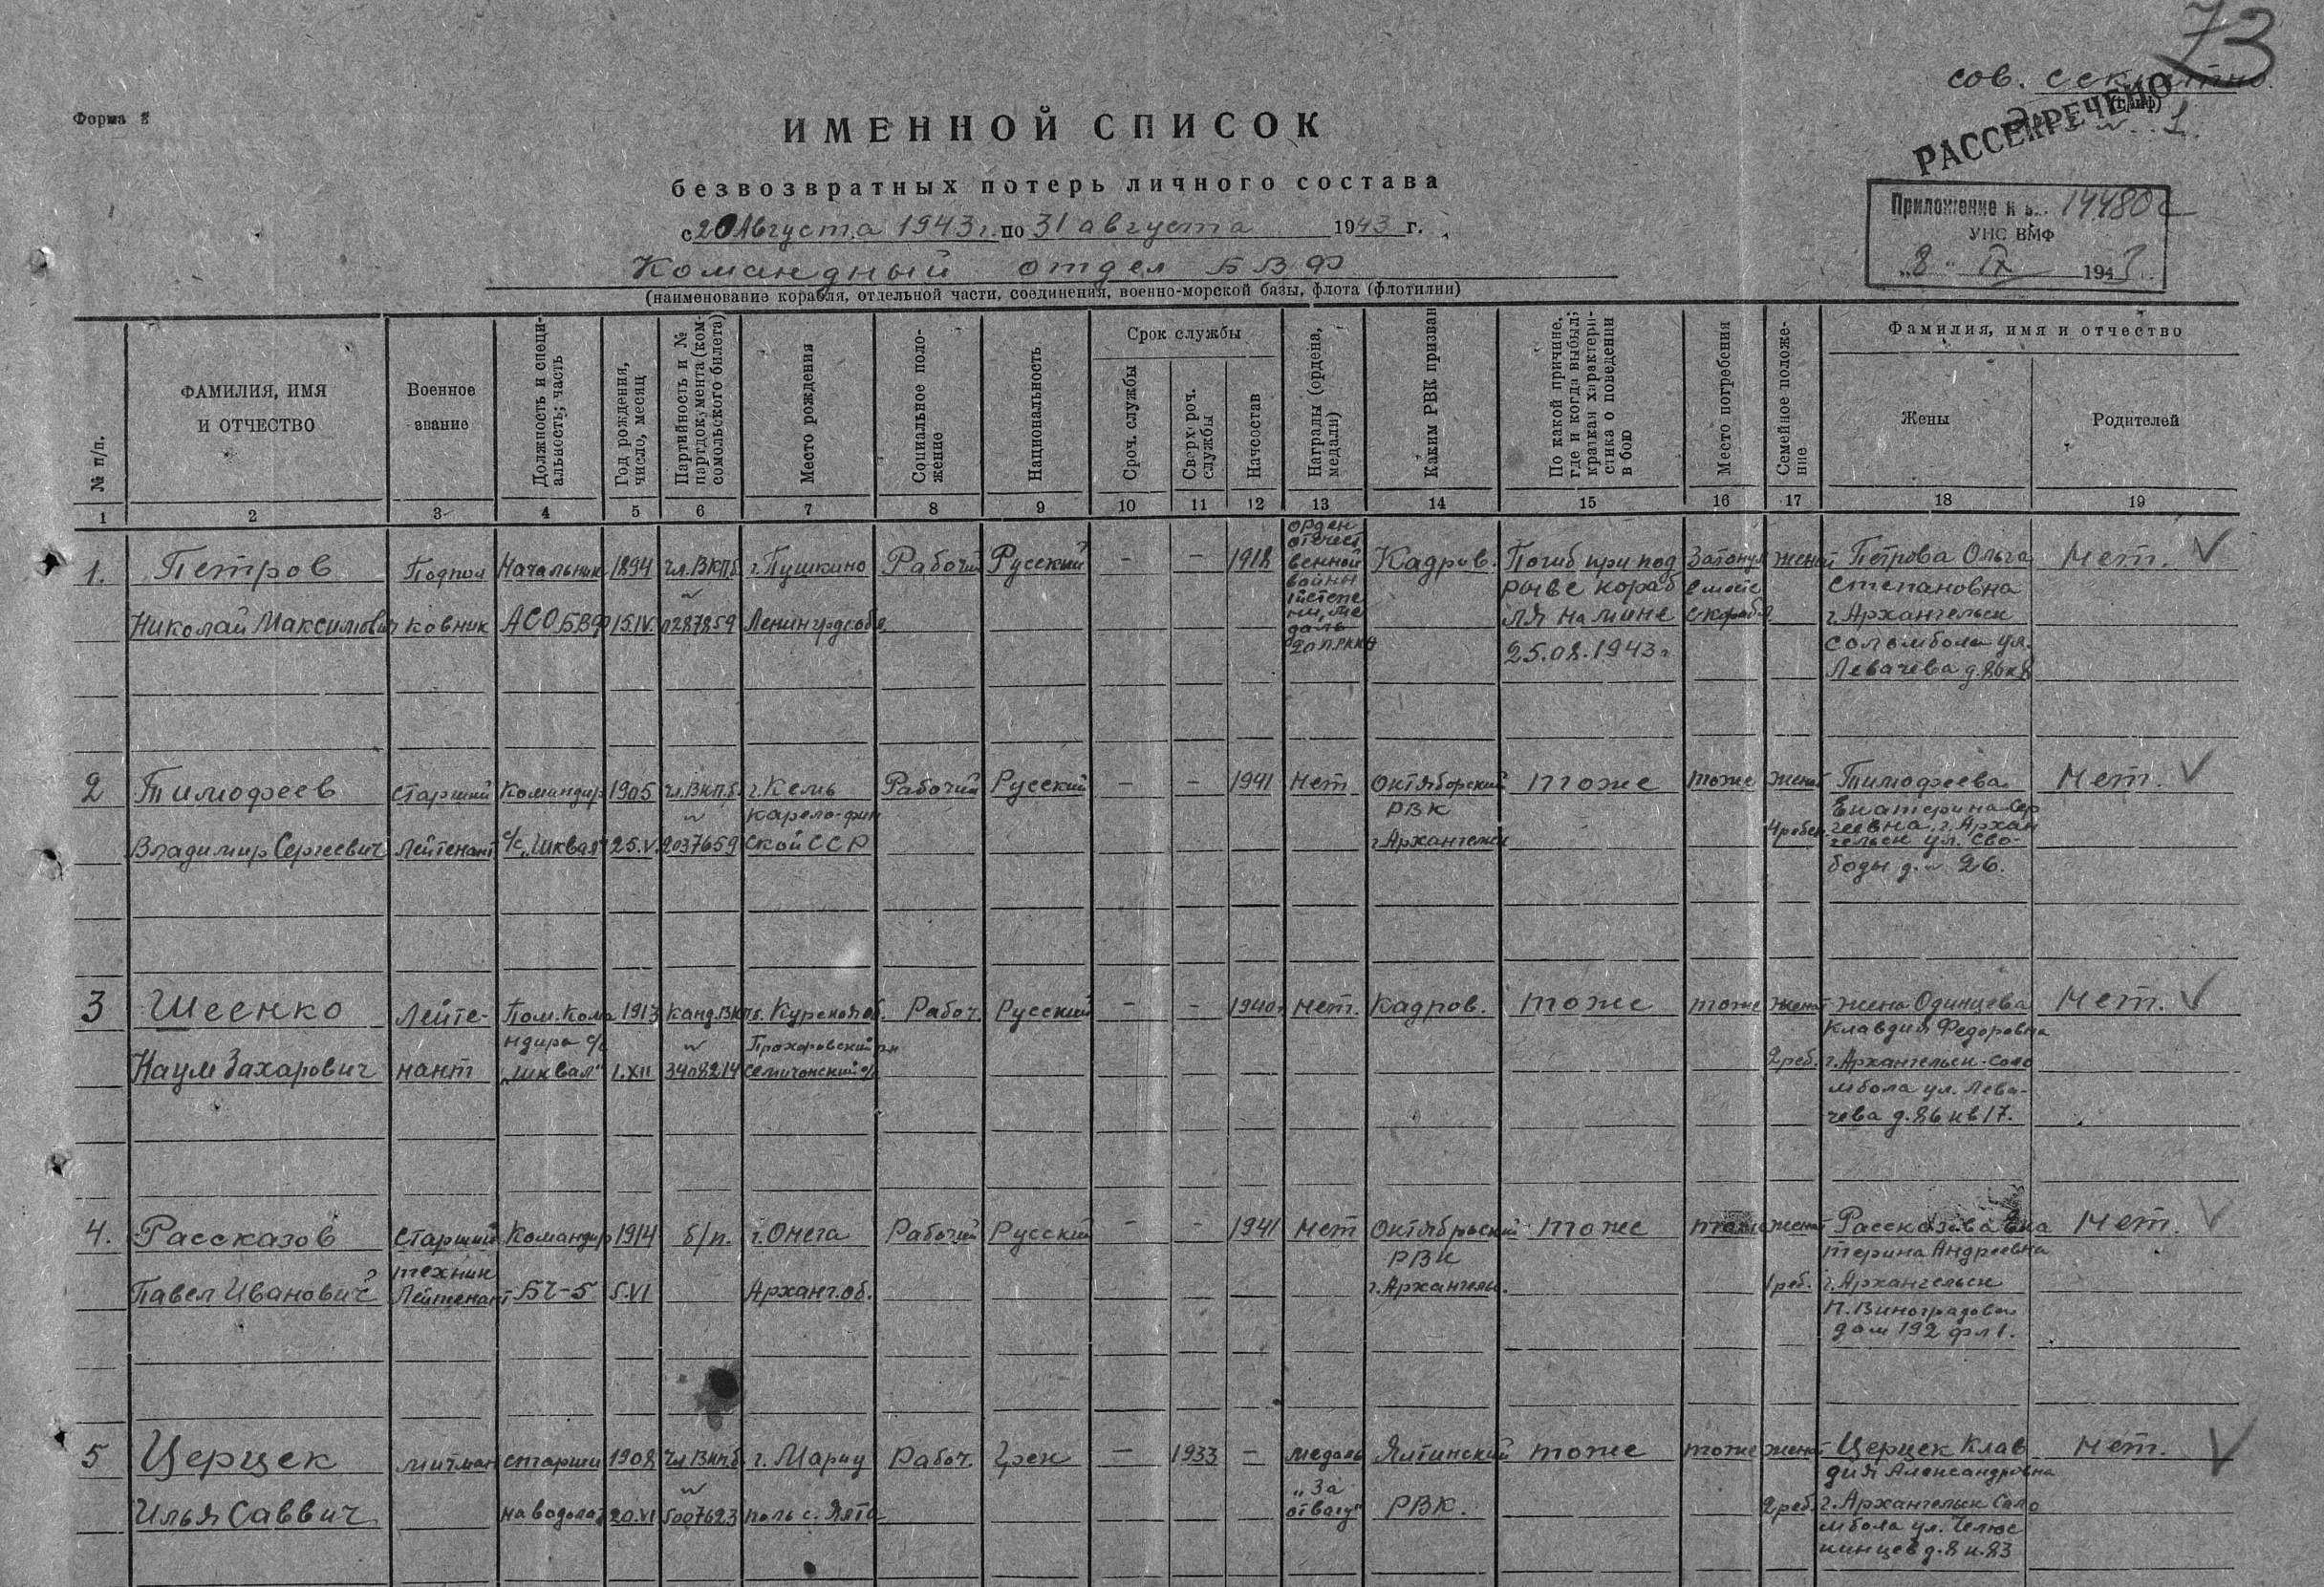 73
сов. секретно
(гриф)
Форма 2
РАССЕКРЕЧЕНО
ИМЕННОЙ СПИСОК
безвозвратных потерь личного состава
с 20 Августа 1943 г. по 31 августа 1943 г.
Командный отдел БВФ
(наименование корабля, отдельной части, соединения, военно-морской базы, флота (флотилии)
Приложение к в.. 14480с
УНС ВМФ
„8“ IX 1943
№ п/п.
ФАМИЛИЯ, ИМЯ
И ОТЧЕСТВО
Военное
звание
Должность и специ-
альность; часть
Год рождения,
число, месяц
Партийность и №
партдокумента (ком-
сомольского билета)
Место рождения
Социальное поло-
жение
Национальность
Срок службы
Сроч. службы
Сверх роч.
службы
Начсостав
Награды (ордена,
медали)
Каким РВК призван
По какой причине,
где и когда выбыл;
краткая характери-
стика о поведении
в бою
Место погребения
Семейное положе-
ние
Фамилия, имя и отчество
Жены
Родителей
1 2 3 4 5 6 7 8 9 10 11 12 13 14 15 16 17 18 19
1.
Петров
Николай Максимович
Подпол
ковник
Начальник
АСО БВФ
1894
15.IV.
чл. ВКПб
№
0287859
г. Пушкино
Ленинградобл.
Рабочий
Русский
–
–
1918
орден
отечест
венной
войны
1 степе
ни, ме
даль
20 л. РККА
Кадров.
Погиб при под
рыве кораб
ля на мине
25.08.1943 г
Затонул
вместе
с корабл.
женат
Петрова Ольга
Степановна
г. Архангельск
Соломбола ул.
Левачева д. 86 к 8
Нет.
2
Тимофеев
Владимир Сергеевич
старший
лейтенант
Командир
с/с „Шквал“
1905
25.V.
чл. ВКП.б
№
2037659
г. Кемь
Карело-фин
ской ССР
Рабочий
Русский
–
–
1941
Нет
Октябрский
РВК
г. Архангельск
тоже
тоже
женат
4 ребен.
Тимофеева
Екатерина Сер
геевна, г. Архан
гельск ул. Сво-
боды д. № 26.
Нет.
3
Шеенко
Наум Захарович
Лейте-
нант
Пом. Кома
ндира с/с
„Шквал“
1913
1.XII
Канд. ВКПб.
№
3408214
Курской об.
Прохоровский рн
Рабоч.
Русский
–
–
1940 г
Нет.
Кадров.
тоже
тоже
женат
2 реб.
жена Одинцева
Клавдия Федоровна
г. Архангельск-Соло
мбола ул. Лева-
чева д. 86 кв 17.
Нет.
4.
Рассказов
Павел Иванович
Старший
техник
Лейтенант
Командир
БЧ-5
1914
5.VI
б/п.
г. Онега
Арханг. об.
Рабочий
Русский
–
–
1941
Нет
Октябрьский
РВК
г. Архангельс.
тоже
тоже
женат
1 реб.
Рассказова Ека
терина Андреевна
г. Архангельск
П. Виноградова
дом 192 фл 1.
Нет.
5
Церцек
Илья Саввич
мичман
старши
на водолаз
1908
20.VI
Чл ВКПб.
№
5007623
г. Мариу
поль с. Ялта
Рабоч.
Грек
–
1933
–
медаль
„За
отвагу“
Ялтинский
РВК.
тоже
тоже
женат
2 реб.
Церцек Клав
дия Александровна
г. Архангельск Соло
мбола ул. Челюс
кинцев д. 8 к. 83
Нет.